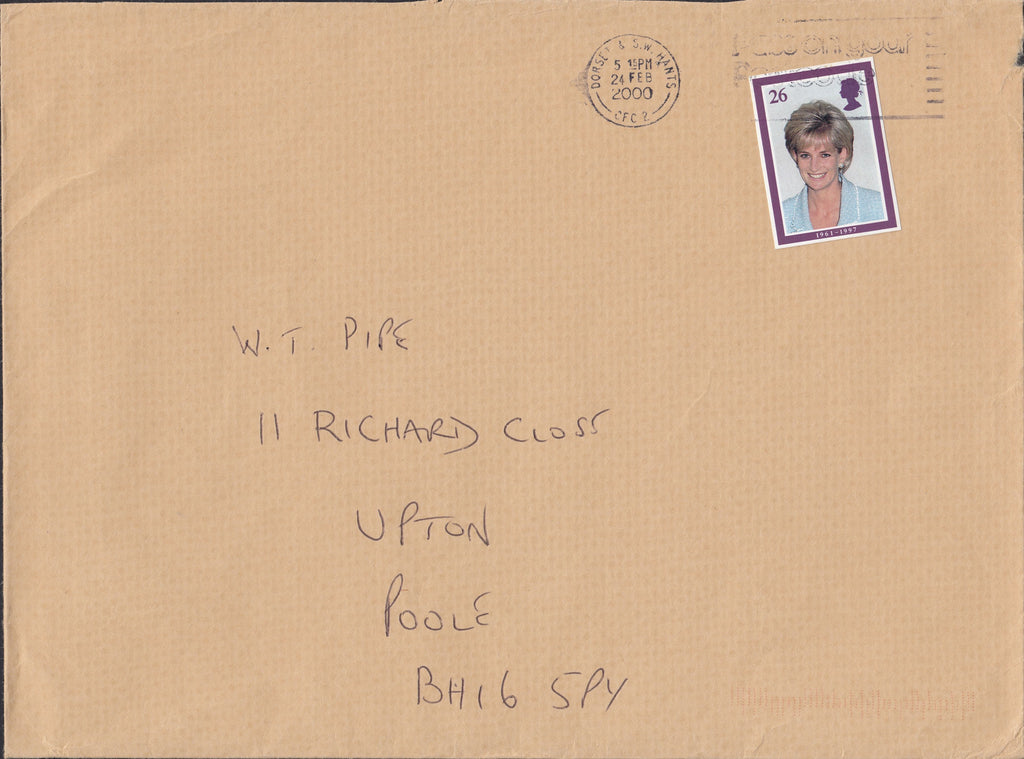 DORSET & S.W. HANTS
5 15PM
24 FEB
2000
CFC 2
Pass on your
26
1961-1997
W. T. PIPE
11 RICHARD CLOSE
UPTON
POOLE
BH16 5PY